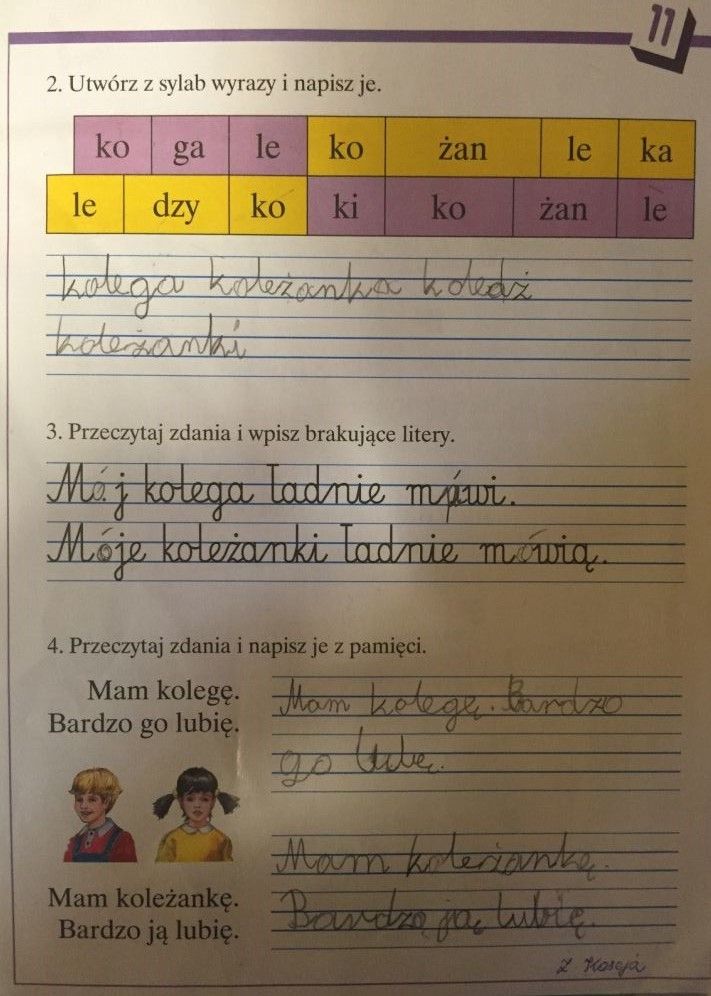 11
2. Utwórz z sylab wyrazy i napisz je.
ko ga le ko żan le ka
le dzy ko ki ko żan le
kolega koleżanka koledż
koleżanki
3. Przeczytaj zdania i wpisz brakujące litery.
Mój kolega ładnie mówi.
Móje koleżanki ładnie mówią.
4. Przeczytaj zdania i napisz je z pamięci.
Mam kolegę.
Bardzo go lubię.
Mam kolegę. Bardzo
go lubę.
Mam koleżankę.
Bardzo ją lubię.
Mam koleżankę.
Bardzo ją lubię.